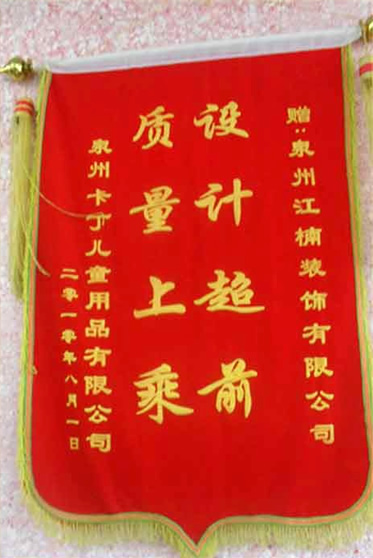 赠：泉州江楠装饰有限公司
设计超前
质量上乘
泉州卡丁儿童用品有限公司
二零一零年八月一日